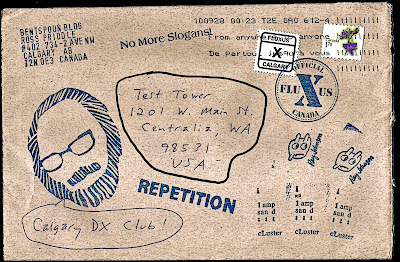 BENTSPOON BLOG
ROSS PRIDDLE
#402 734-2 AVE NW
CALGARY AB
T2N 0E3 CANADA
100920 00:23 T2E 0A0 612-6
No More Slogans!
From anywhere...
De partout...
FLUXUS
X
CALGARY
OFFICIAL
FLUXUS
CANADA
Test Tower
1201 W. Main St.
Centralia, WA
98531
USA
REPETITION
Calgary DX Club!
Ray Johnson
Ray Johnson
1 amp
san d
cLuster
1 amp
san d
cLuster
1 amp
san d
cLuster